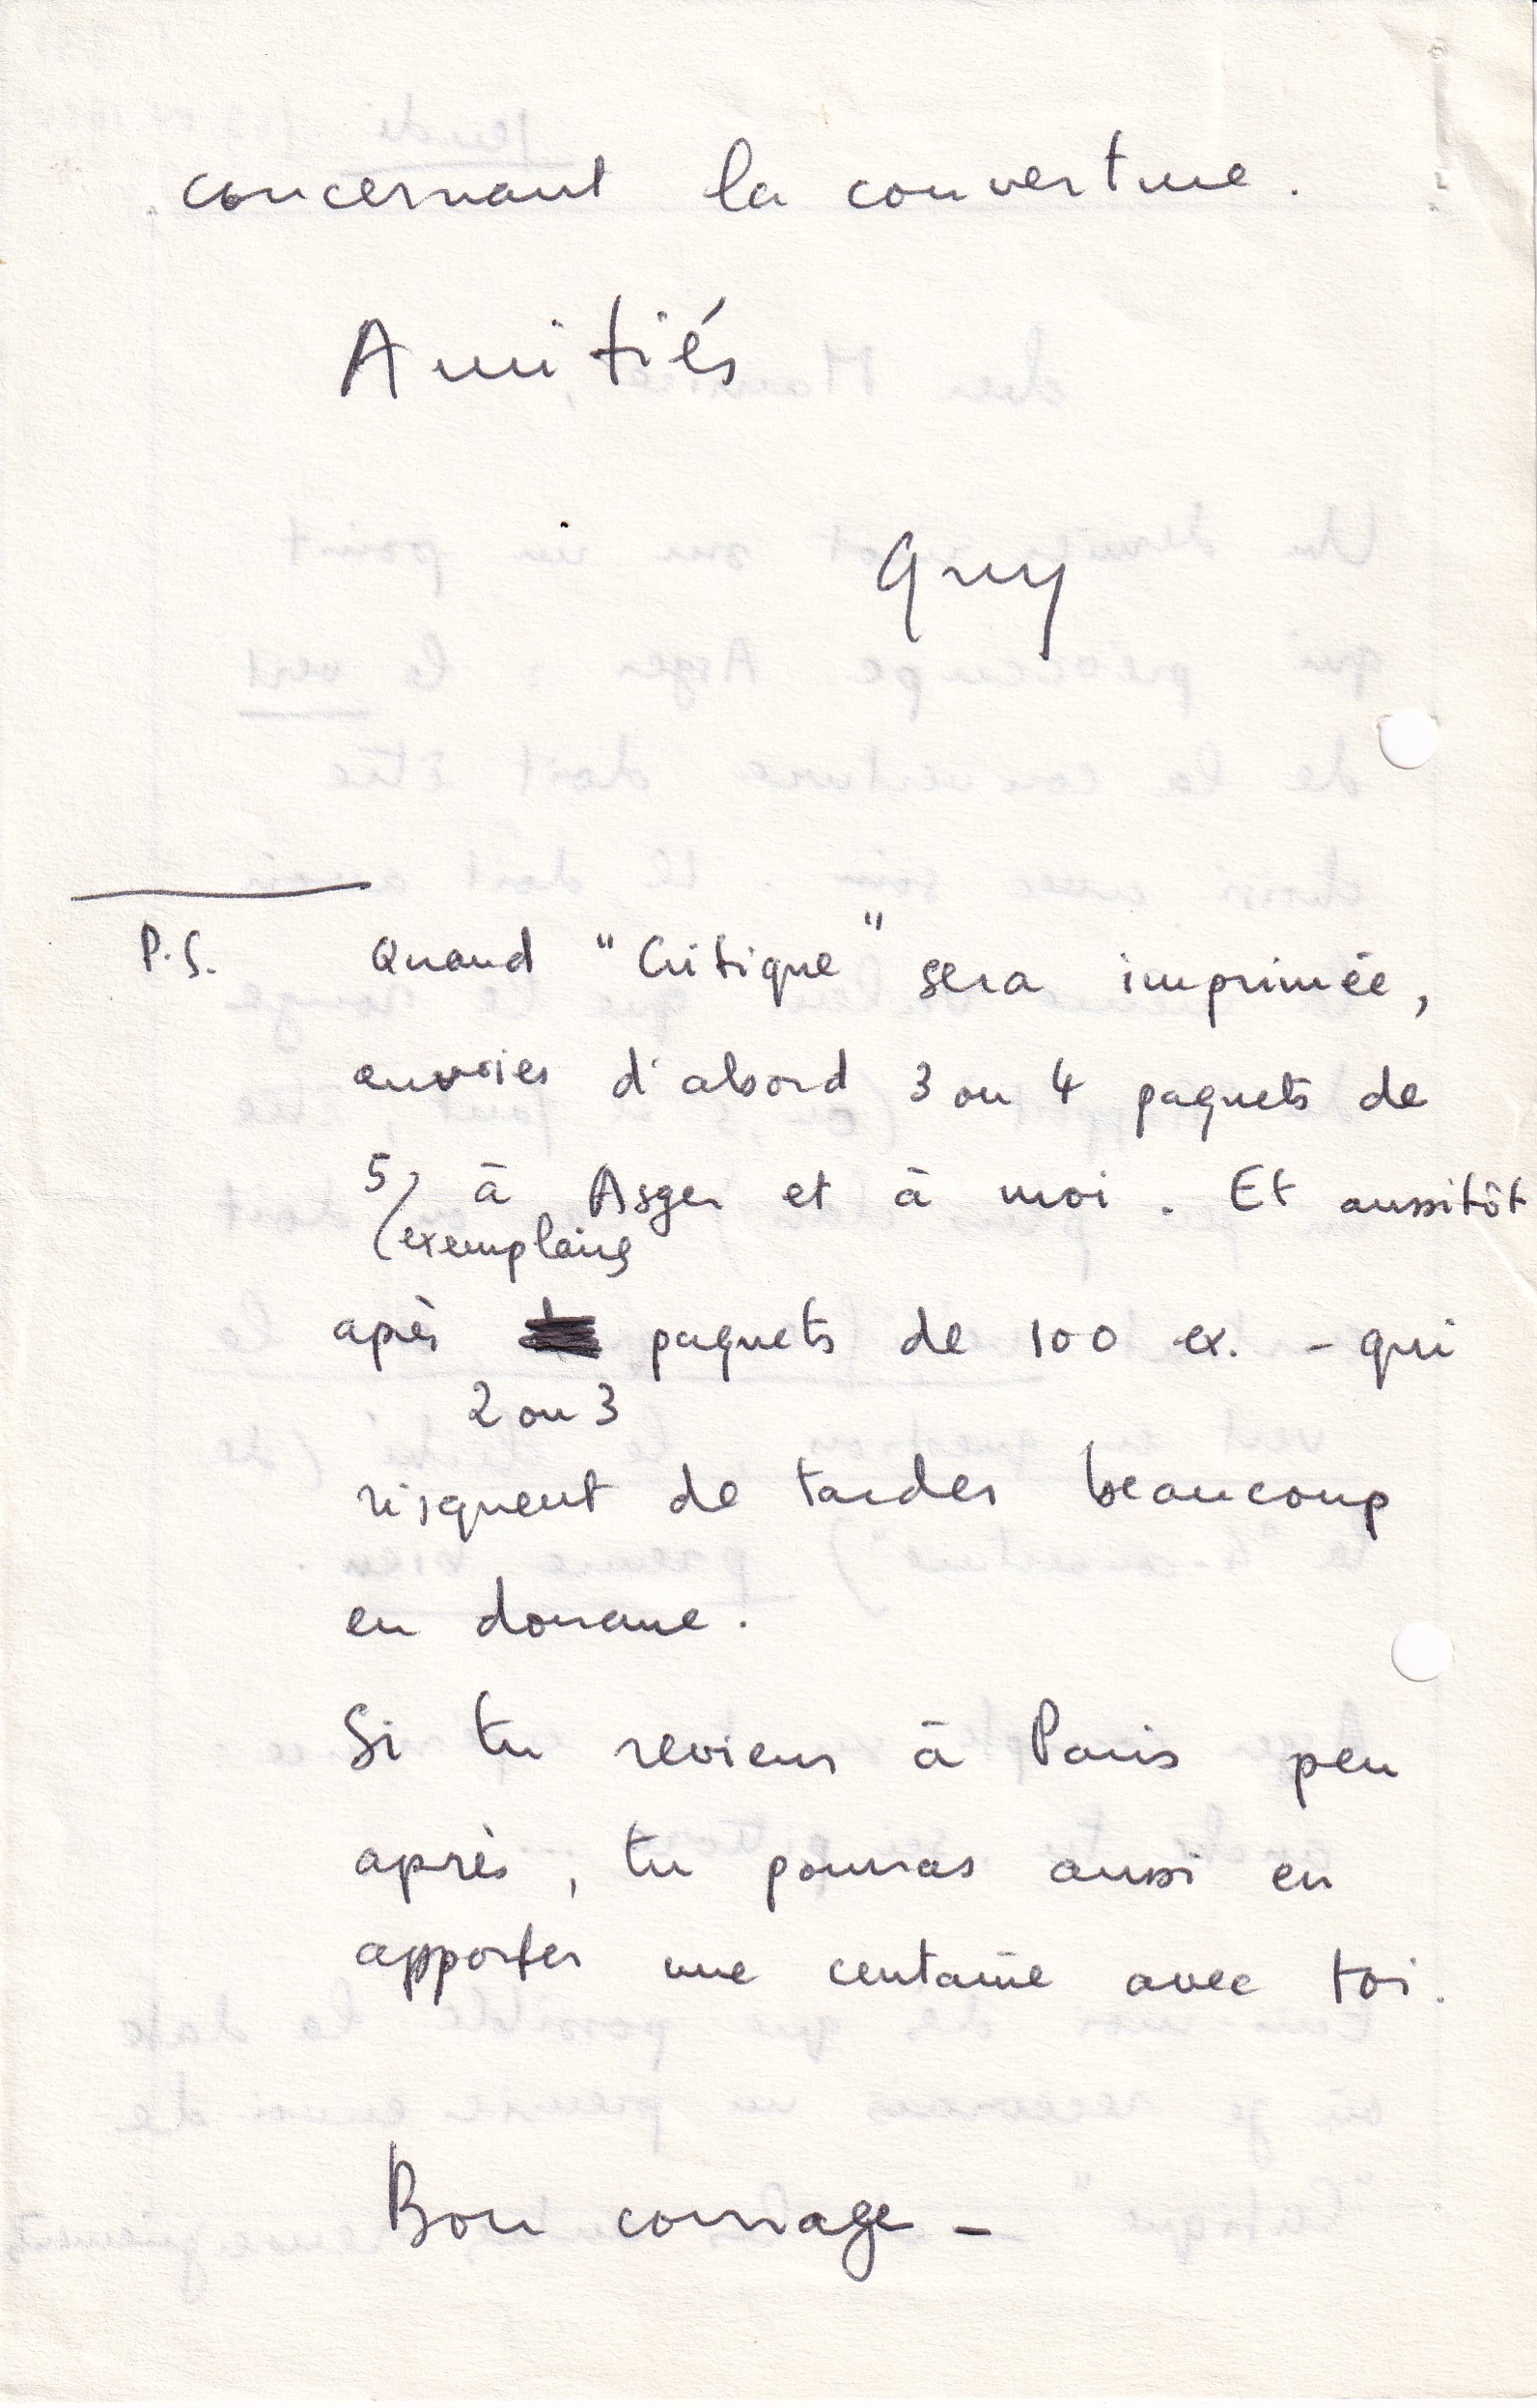 concernant la couverture.
Amitiés
Guy
P.S. Quand "Critique" sera imprimée,
envoies d'abord 3 ou 4 paquets de
5 à Asger et à moi. Et aussitôt
(exemplaires
après paquets de 100 ex. - qui
2 ou 3
risquent de tarder beaucoup
en douane.
Si tu reviens à Paris peu
après, tu pourras aussi en
apporter une centaine avec toi.
Bon courage -